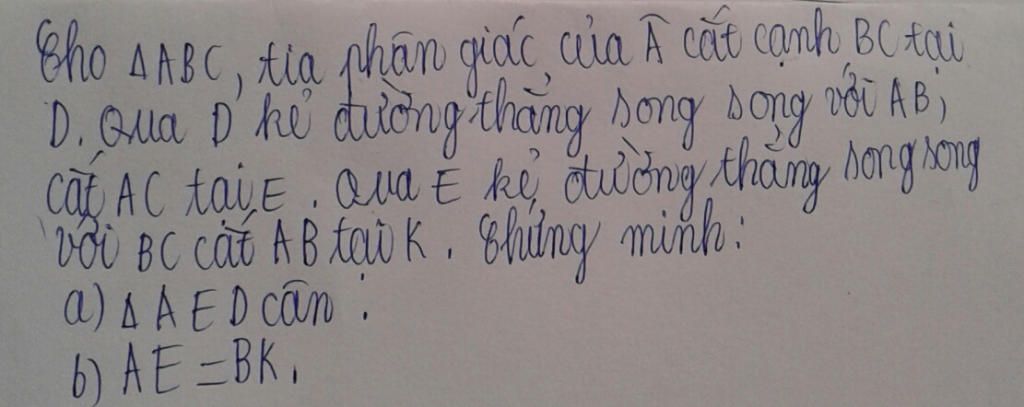 Cho ΔABC, tia phân giác của Â cắt cạnh BC tại
D. Qua D kẻ đường thẳng song song với AB,
cắt AC tại E. Qua E kẻ đường thẳng song song
với BC cắt AB tại K. Chứng minh:
a) Δ AED cân.
b) AE = BK.